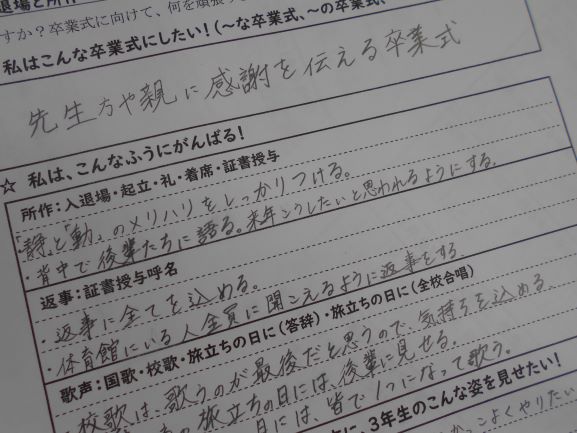 退場と所作
すか?卒業式に向けて、何を頑張
私はこんな卒業式にしたい!(〜な卒業式、〜の卒業式、
先生方や親に感謝を伝える卒業式
☆ 私は、こんなふうにがんばる!
所作:入退場・起立・礼・着席・証書授与
・「静」と「動」のメリハリをしっかりつける。
・背中で後輩たちに語る。来年こうしたいと思われるようにする。
返事:証書授与呼名
・返事に全てを込める。
・体育館にいる人全員に聞こえるように返事をする。
歌声:国歌・校歌・旅立ちの日に(答辞)・旅立ちの日に(全校合唱)
・校歌は、歌うのが最後だと思うので、気持ちを込める。
の旅立ちの日には、後輩に見せる。
日には、皆で1つになって歌う。
に、3年生のこんな姿を見せたい!
かっこよくやりたい